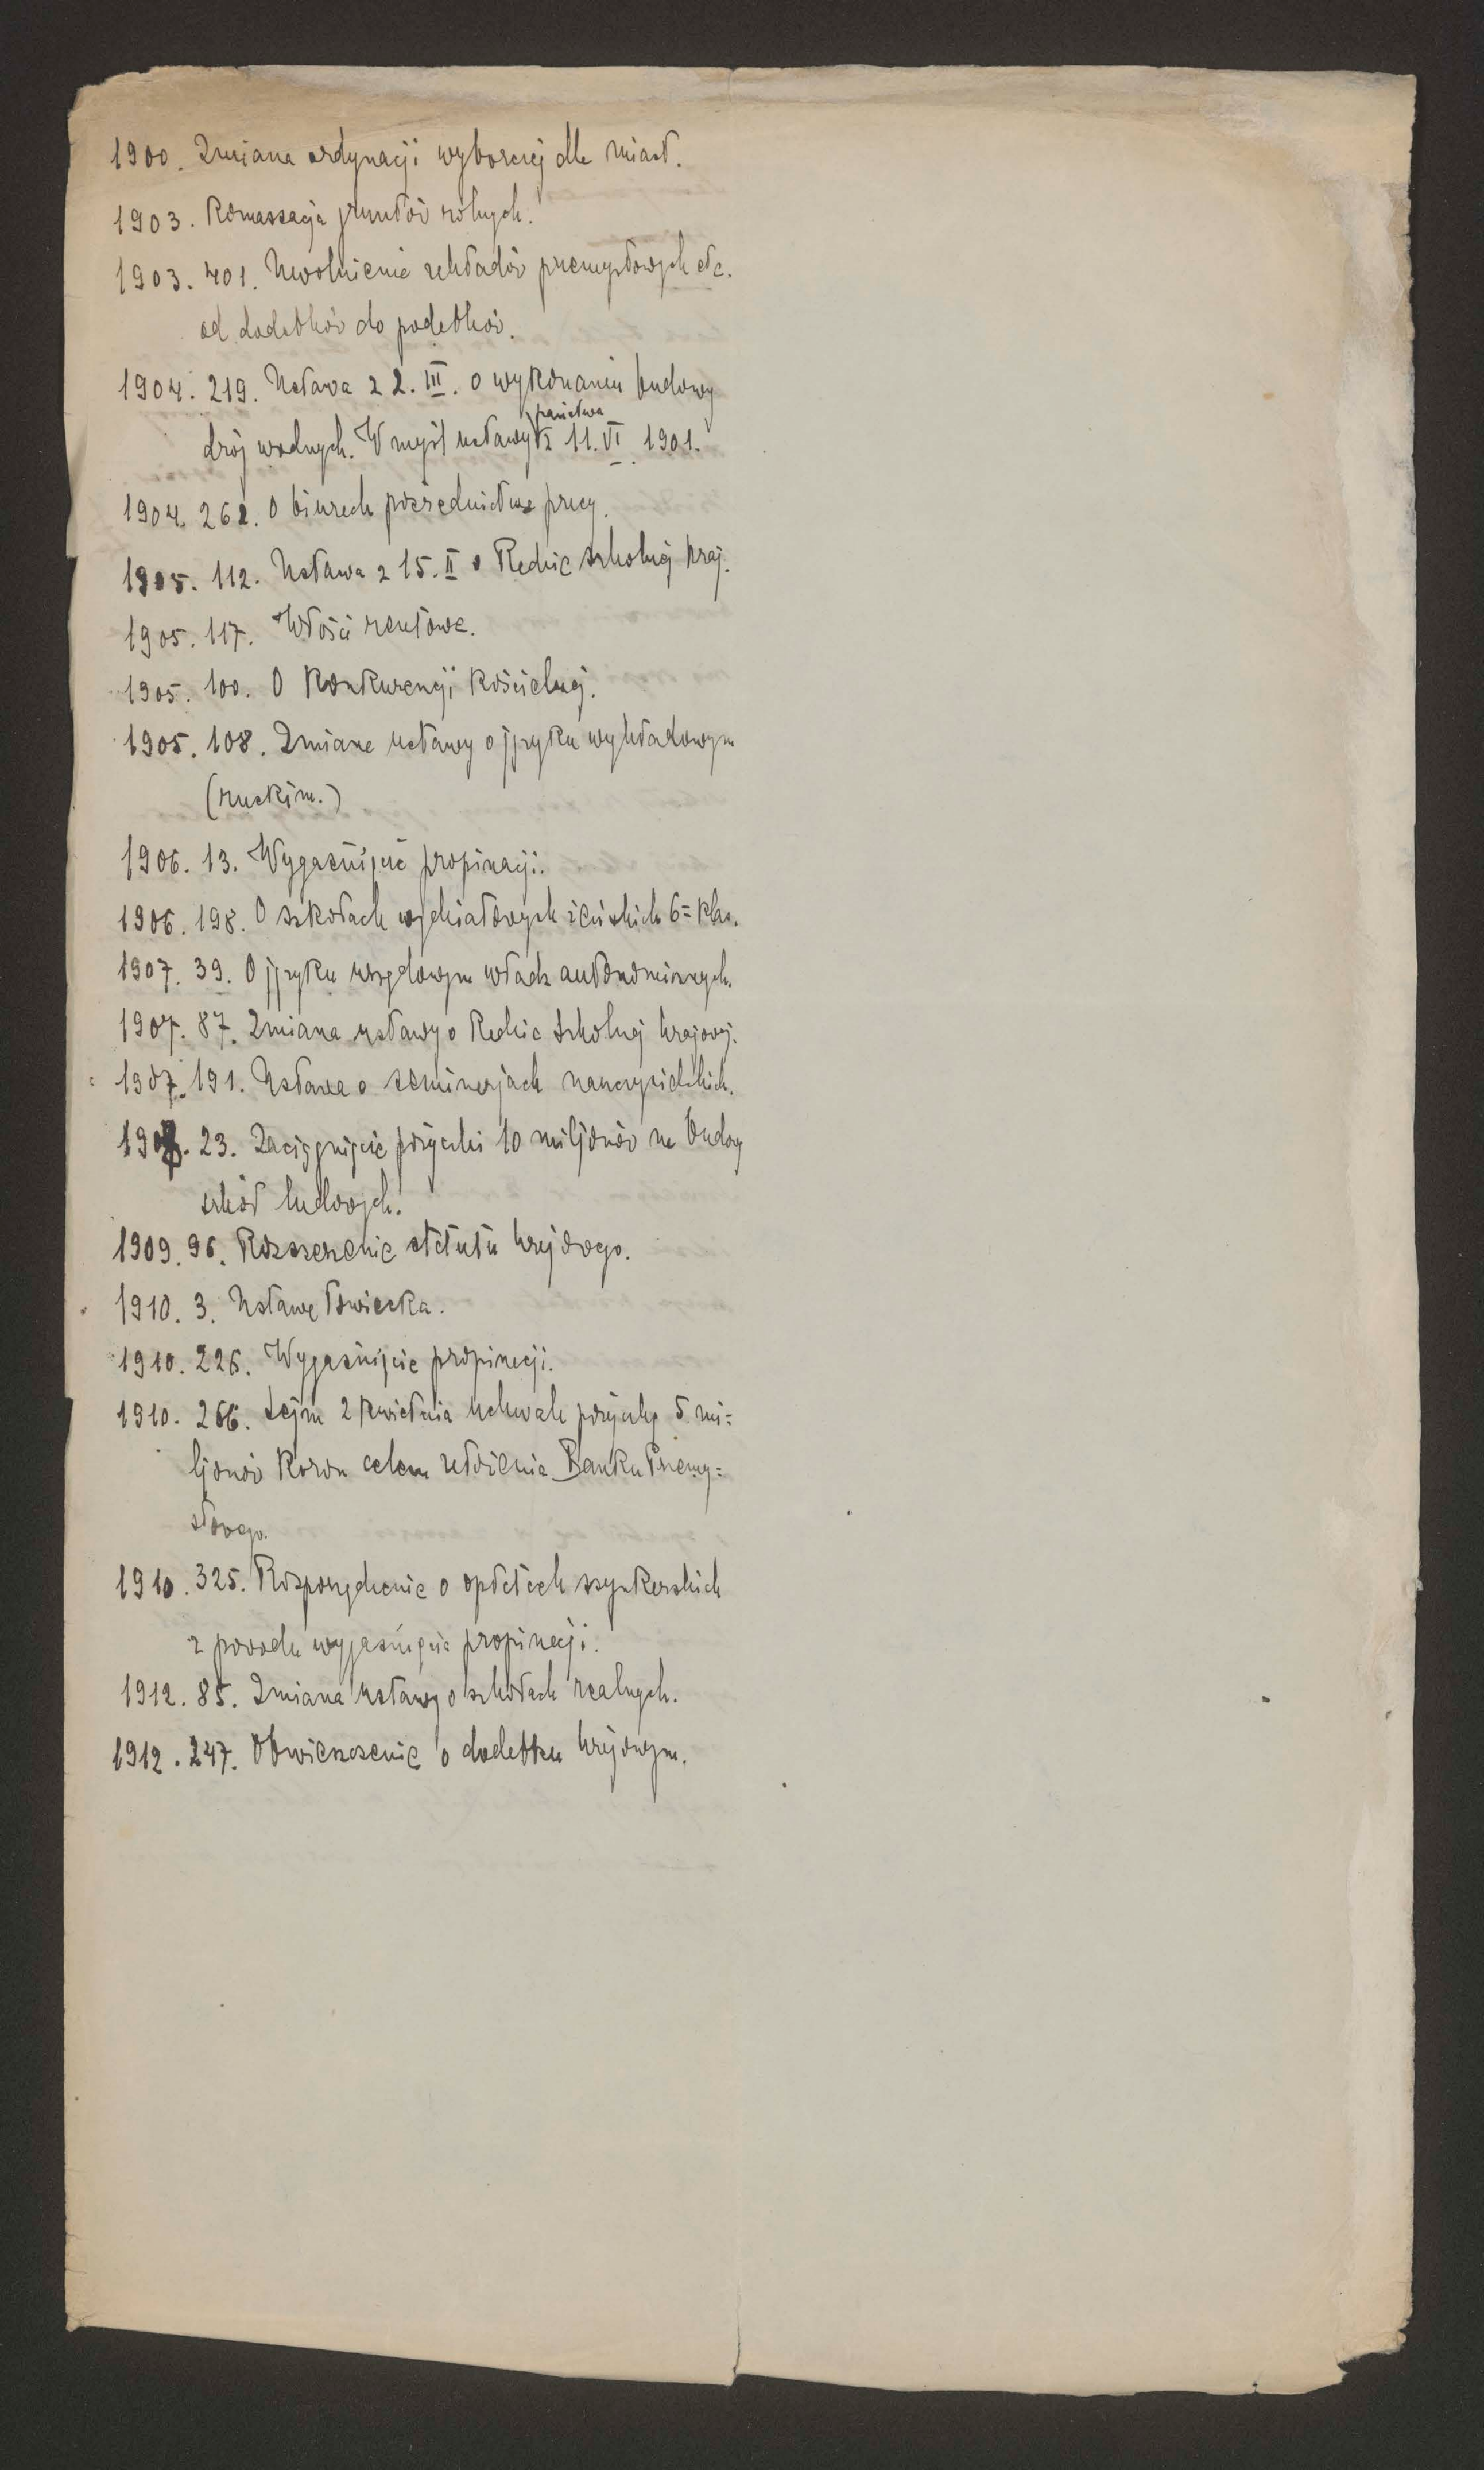 1900. Zmiana ordynacji wyborczej dla miast.
1903. Komassacja gruntów rolnych.
1903. 401. Uwolnienie zakładów przemysłowych etc.
od dodatków do podatków.
1904. 219. Ustawa z 2. III. o wykonaniu budowy
dróg wodnych. W myśl ustawy państwa z 11. VI. 1901.
1904. 262. O biurach pośrednictwa pracy.
1905. 112. Ustawa z 15. II o Radzie szkolnej kraj.
1905. 117. Włości rentowe.
1905. 100. O konkurencji kościelnej.
1905. 108. Zmiana ustawy o języku wykładowym
(ruskim.)
1906. 13. Wygaśnięcie propinacji.
1906. 198. O szkołach wydziałowych żeńskich 6=klas.
1907. 39. O języku urzędowym władz autonomicznych.
1907. 87. Zmiana ustawy o Radzie szkolnej krajowej.
1907. 191. Ustawa o seminarjach nauczycielskich.
23. Zaciągnięcie pożyczki 10 miljonów na budowę
szkół ludowych.
1909. 96. Rozszerzenie statutu krajowego.
1910. 3. Ustawa łowiecka.
1910. 226. Wygaśnięcie propinacji.
1910. 266. Sejm 2 kwietnia uchwala pożyczkę 5 mi=
ljonów koron celem założenia Banku Przemy=
słowego.
1910. 325. Rozporządzenie o opłatach szynkarskich
z powodu wygaśnięcia propinacji.
1912. 85. Zmiana ustawy o szkołach realnych.
1912. 247. Obwieszczenie o dodatku krajowym.